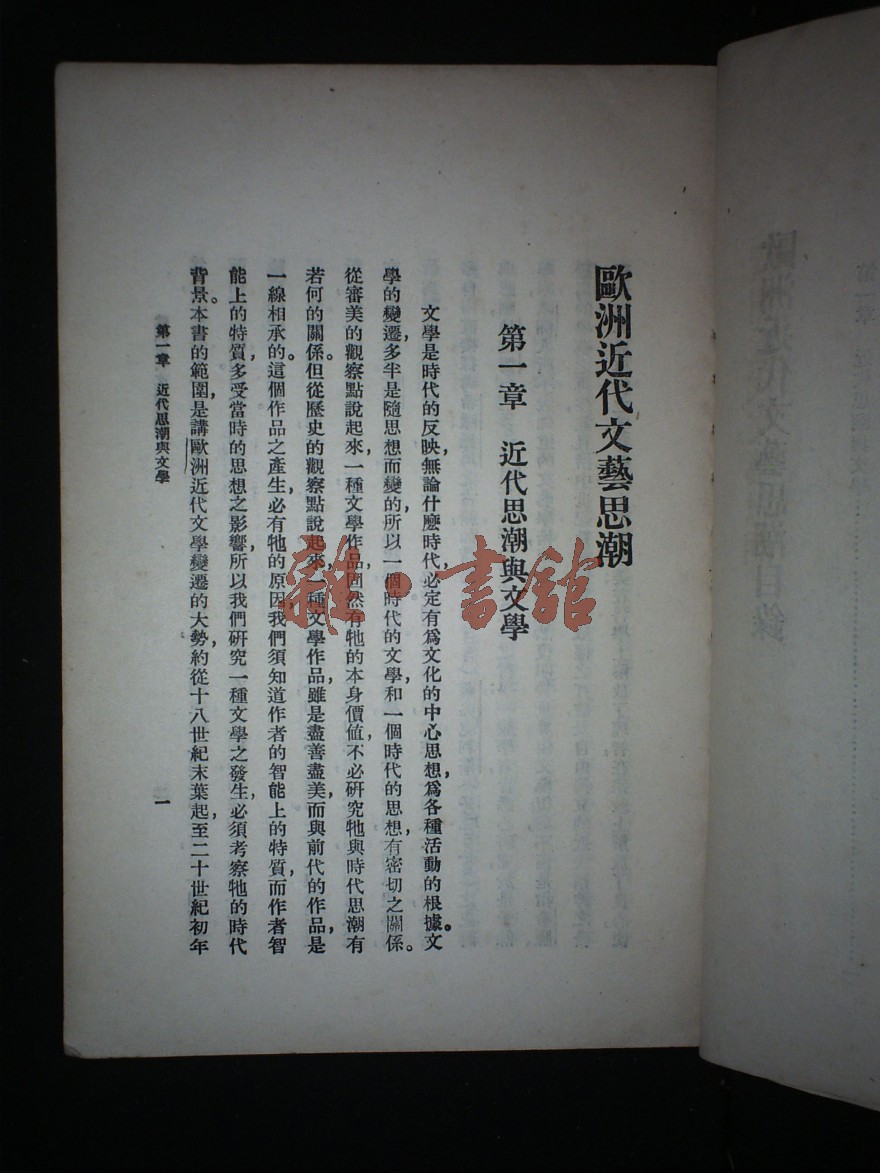 歐洲近代文藝思潮
第一章 近代思潮與文學
文學是時代的反映,無論什麼時代,必定有爲文化的中心思想,爲各種活動的根據。文
學的變遷,多半是隨思想而變的,所以一個時代的文學,和一個時代的思想,有密切之關係。
從審美的觀察點說起來,一種文學作品,固然有牠的本身價値,不必硏究牠與時代思潮有
若何的關係。但從歷史的觀察點說起來,一種文學作品,雖是盡善盡美,而與前代的作品,是
一線相承的。這個作品之產生,必有牠的原因,我們須知道作者的智能上的特質,而作者智
能上的特質,多受當時的思想之影響,所以我們硏究一種文學之發生,必須考察牠的時代
背景。本書的範圍,是講歐洲近代文學變遷的大勢,約從十八世紀末葉起,至二十世紀初年
第一章 近代思潮與文學
一
雜·書舘
歐洲近代文藝思潮目錄